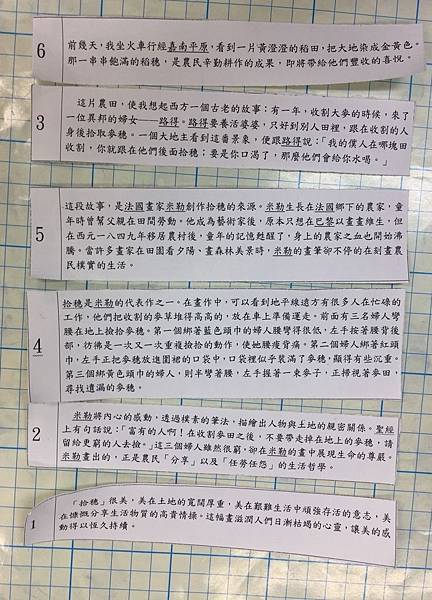 6
前幾天，我坐火車行經嘉南平原，看到一片黃澄澄的稻田，把大地染成金黃色。
那一串串飽滿的稻穗，是農民辛勤耕作的成果，即將帶給他們豐收的喜悅。
3
這片農田，使我想起西方一個古老的故事：有一年，收割大麥的時候，來了
一位異邦的婦女──路得。路得要養活婆婆，只好到別人田裡，跟在收割的人
身後拾取麥穗。一個大地主看到這番景象，便跟路得說：「我的僕人在哪塊田
收割，你就跟在他們後面拾穗；要是你口渴了，那麼他們會給你水喝。」
5
這段故事，是法國畫家米勒創作拾穗的來源。米勒生長在法國鄉下的農家，童
年時曾幫父親在田間勞動。他成為藝術家後，原本只想在巴黎以畫畫維生，但
在西元一八四九年移居農村後，童年的記憶甦醒了，身上的農家之血也開始沸
騰。當許多畫家在田園看夕陽、畫森林美景時，米勒的畫筆卻不停的在刻畫農
民樸實的生活。
4
拾穗是米勒的代表作之一。在畫作中，可以看到地平線遠方有很多人在忙碌的
工作，他們把收割的麥草堆得高高的，放在車上準備運走。前面有三名婦人彎
腰在地上撿拾麥穗。第一個綁著藍色頭巾的婦人腰彎得很低，左手按著腰背後
部，彷彿是一次又一次重複撿拾的動作，使她腰痠背痛。第二個婦人綁著紅頭
巾，左手正把麥穗放進圍裙的口袋中，口袋裡似乎裝滿了麥穗，顯得有些沉重。
第三個綁黃色頭巾的婦人，則半彎著腰，左手握著一束麥子，正掃視著麥田，
尋找遺漏的麥穗。
2
米勒將內心的感動，透過樸素的筆法，描繪出人物與土地的親密關係。聖經
上有句話說：「富有的人啊！在收割麥田之後，不要帶走掉在地上的麥穗，請
留給更窮的人去撿。」這三個婦人雖然很窮，卻在米勒的畫中展現生命的尊嚴。
米勒畫出的，正是農民「分享」以及「任勞任怨」的生活哲學。
1
「拾穗」很美，美在土地的寬闊厚重，美在艱難生活中頑強存活的意志，美
在慷慨分享生活物質的高貴情操。這幅畫滋潤人們日漸枯竭的心靈，讓美的感
動得以恆久持續。